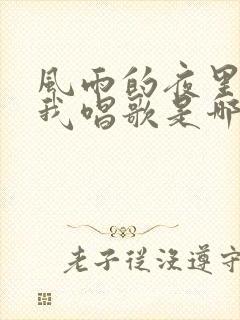 風雨的夜里
我唱歌是哪
老子從沒遵守